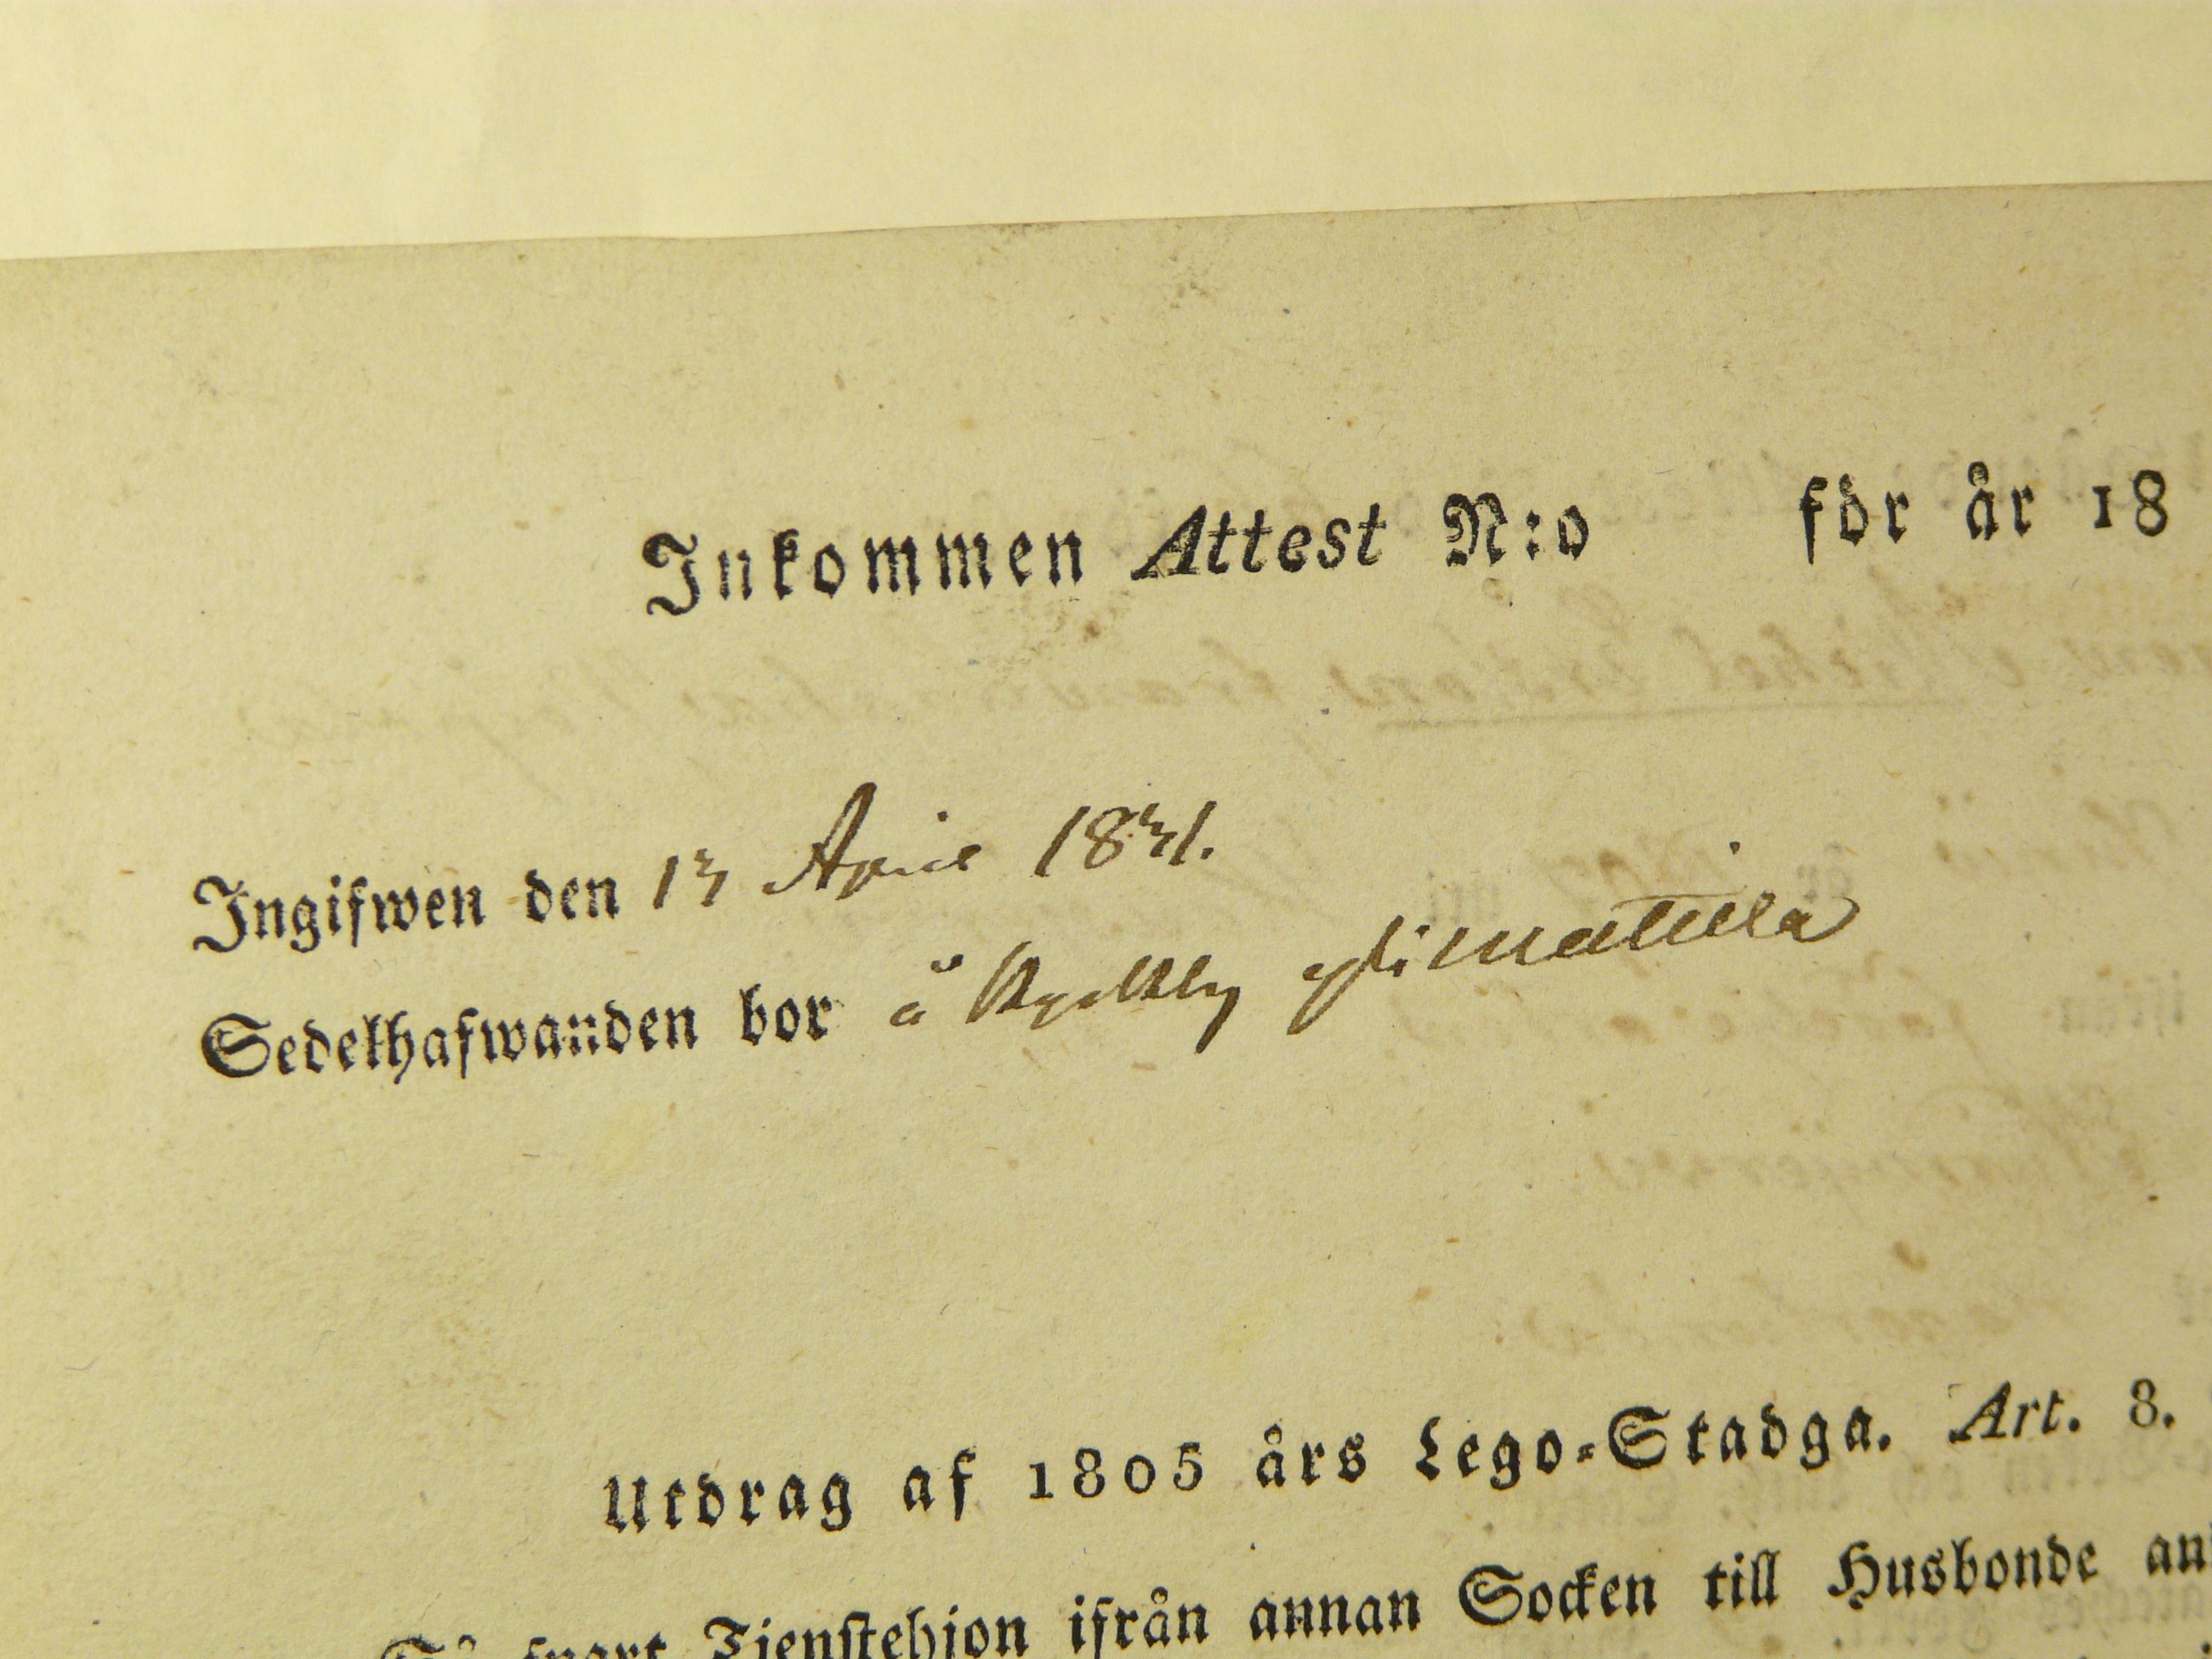 Inkommen Attest N:o för år 18
Ingifwen den 13 April 1831.
Sedelhafwanden bor å Kyrkby Ylimattila
Utdrag af 1805 års Lego-Stadga. Art. 8.
Så snart Tienstehjon ifrån annan Socken till Husbonde an